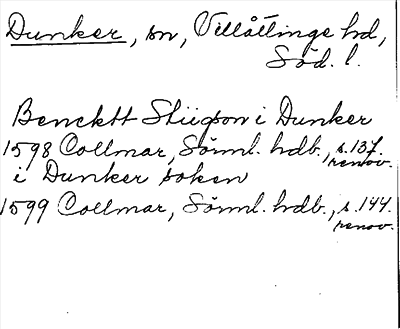 Dunker, sn, Villåttinge hd,
Söd. l.
Bencktt Stiigson i Dunker
1598 Collmar, Sörml. hdb., s. 137.
renov.
i Dunker soken
1599 Collmar, Sörml. hdb., s. 144.
renov.